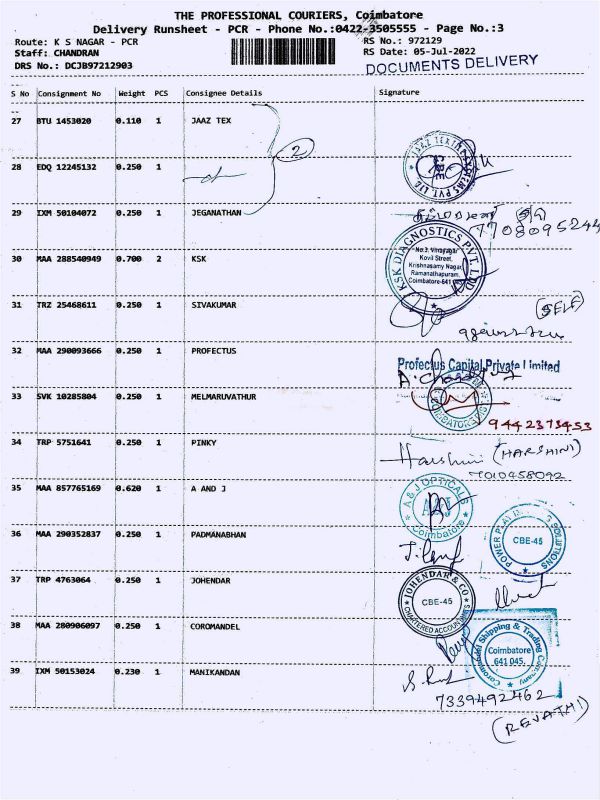 THE PROFESSIONAL COURIERS, Coimbatore
Delivery Runsheet - PCR - Phone No.:0422-3505555 - Page No.:3
Route: K S NAGAR - PCR
RS No.: 972129
Staff: CHANDRAN
RS Date: 05-Jul-2022
DRS No.: DCJB97212903
DOCUMENTS DELIVERY
S No Consignment No Weight PCS Consignee Details Signature
27 BTU 1453020 0.110 1 JAAZ TEX
2
28 EDQ 12245132 0.250 1
29 IXM 50104072 0.250 1 JEGANATHAN
7708095244
30 MAA 288540949 0.700 2 KSK
KSK DIAGNOSTICS PVT. LTD
No:3, Vinayagar
Kovil Street,
Krishnasamy Nagar,
Ramanathapuram,
Coimbatore-641 045.
31 TRZ 25468611 0.250 1 SIVAKUMAR
(SELF)
32 MAA 290093666 0.250 1 PROFECTUS
Profectus Capital Private Limited
33 SVK 10285804 0.250 1 MELMARUVATHUR
9442373453
34 TRP 5751641 0.250 1 PINKY
Harshini (HARSHINI)
7010458092
35 MAA 857765169 0.620 1 A AND J
A & J OPTICALS
A&J
Coimbatore
36 MAA 290352837 0.250 1 PADMANABHAN
CBE-45
37 TRP 4763064 0.250 1 JOHENDAR
JOHENDAR & CO
CBE-45
CHARTERED ACCOUNTANTS
38 MAA 280906097 0.250 1 COROMANDEL
Coromandel Shipping & Trading Company
Coimbatore
641 045.
39 IXM 50153024 0.230 1 MANIKANDAN
7339492462
(REVATHI)